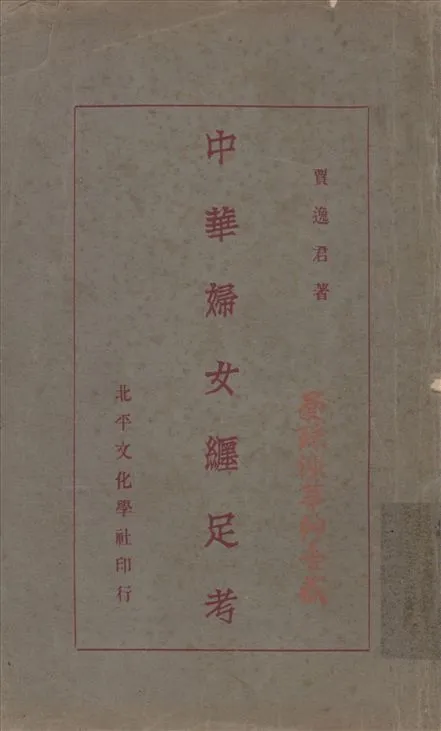 賈逸君著
中華婦女纏足考
北平文化學社印行